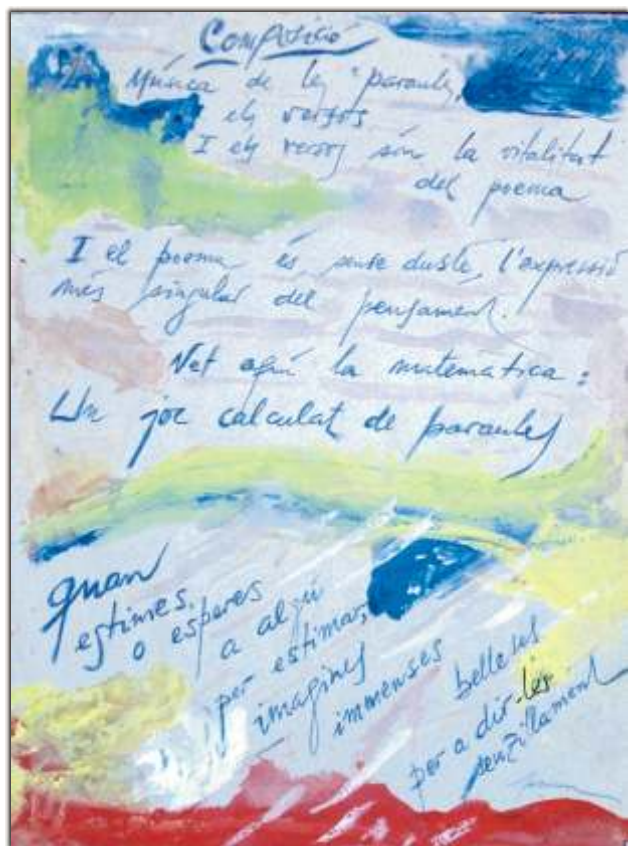 Composició
Música de les paraules,
els versos
I els versos són la vitalitat
del poema
I el poema és, sense dubte, l'expressió
més singular del pensament.
Vet aquí la matemàtica:
Un joc calculat de paraules
quan
estimes,
o esperes
a algú
per estimar,
imagines
immenses
belleses
per a dir-les
senzillament